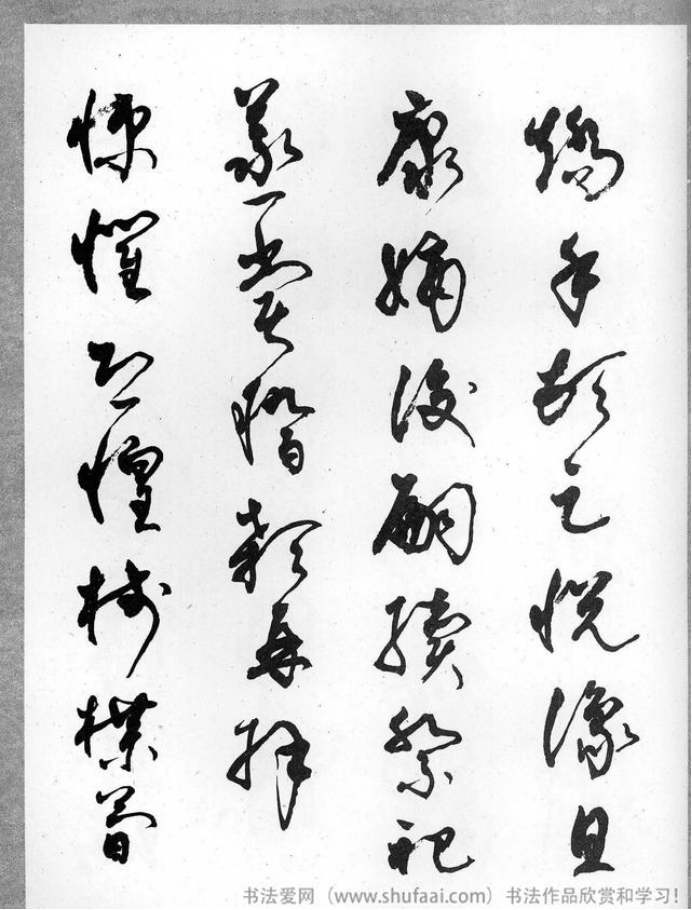 矯手頓足悅豫且
康嫡後嗣續祭祀
蒸嘗稽顙再拜
悚懼恐惶牋牒簡
书法爱网（www.shufaai.com）书法作品欣赏和学习！